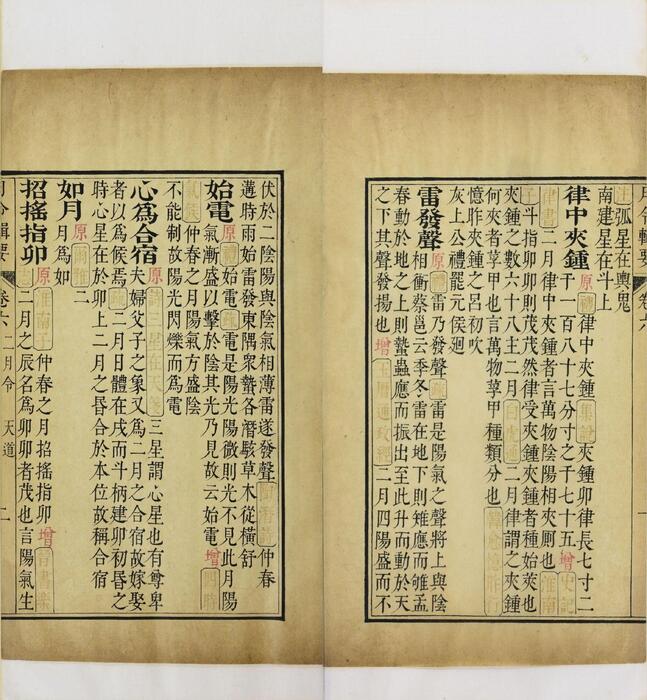 弧星在輿鬼
南建星在斗上
律中夾鍾
原 律中夾鍾 夾鍾卯律長七寸二
千一百八十七分寸之千七十五 增 史記
律書 二月律中夾鍾者言萬物陰陽相夾厠也 淮南
子 斗指卯卯則茂茂然律受夾鍾夾鍾者種始莢也
夾鍾之數六十八主二月 白虎通 二月律謂之夾鍾
何夾者孚甲也言萬物孚甲種類分也
憶昨夾鍾之呂初吹
灰上公禮罷元侯廻
雷發聲
原 雷乃發聲 雷是陽氣之聲將上與陰
相衝蔡邕云季冬雷在地下則雉應而雊孟
春動於地之上則蟄蟲應而振出至此升而動於天
之下其聲發揚也 增 二月四陽盛而不
伏於二陰陽與陰氣相薄雷遂發聲 仲春
遘時雨始雷發東隅衆蟄各潛駭草木從橫舒
始電
原 始電 電是陽光陽微則光不見此月陽
氣漸盛以擊於陰其光乃見故云始電 增
仲春之月陽氣方盛陰
不能制故陽光閃爍而爲電
心爲合宿
原 三星在天 三星謂心星也有尊卑
夫婦父子之象又爲二月之合宿故嫁娶
者以爲候焉 二月日體在戌而斗柄建卯初昏之
時心星在於卯上二月之昏合於本位故稱合宿
如月
原 爾雅 二
月爲如
招搖指卯
原 淮南子 仲春之月招搖指卯 增 晉書樂
志 二月之辰名爲卯卯者茂也言陽氣生
月令輯要
卷六 二月令 天道 二